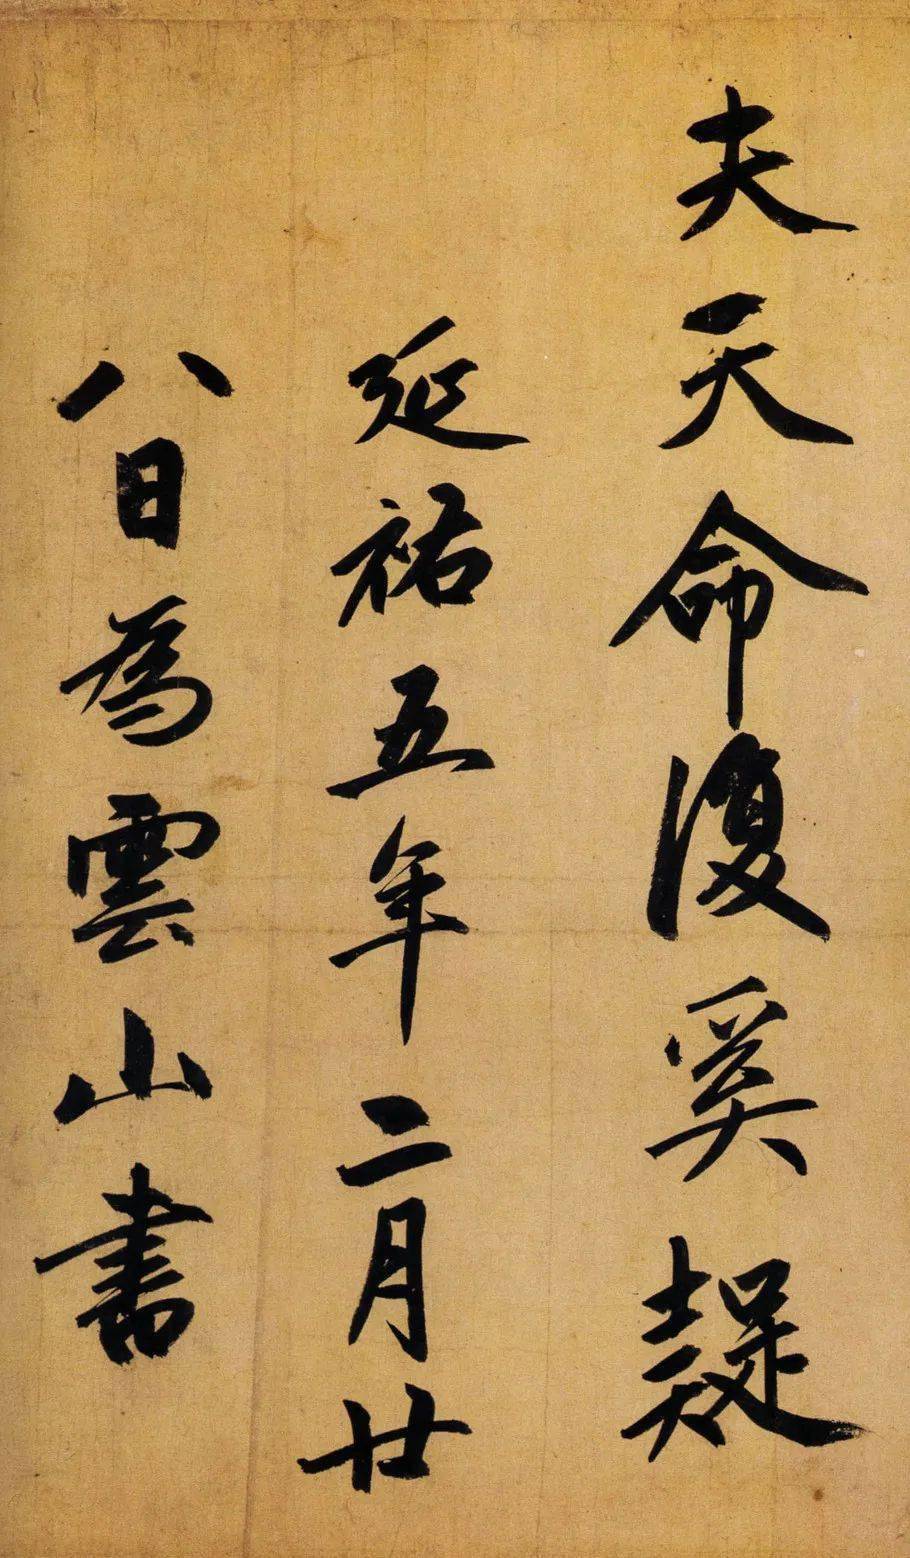 夫天命復奚疑
延祐五年二月廿
八日為雲山書